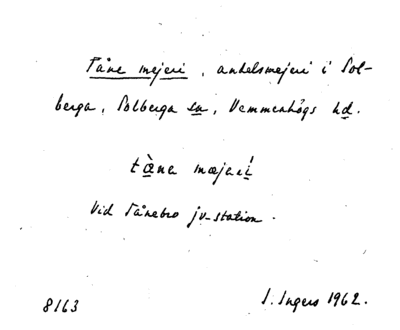 Tåne mejeri, andelsmejeri i Sol-
berga, Solberga sn, Vemmenhögs hd.
tæ̀na mæjarí
Vid Tånebro jv-station.
8163 I. Ingers 1962.